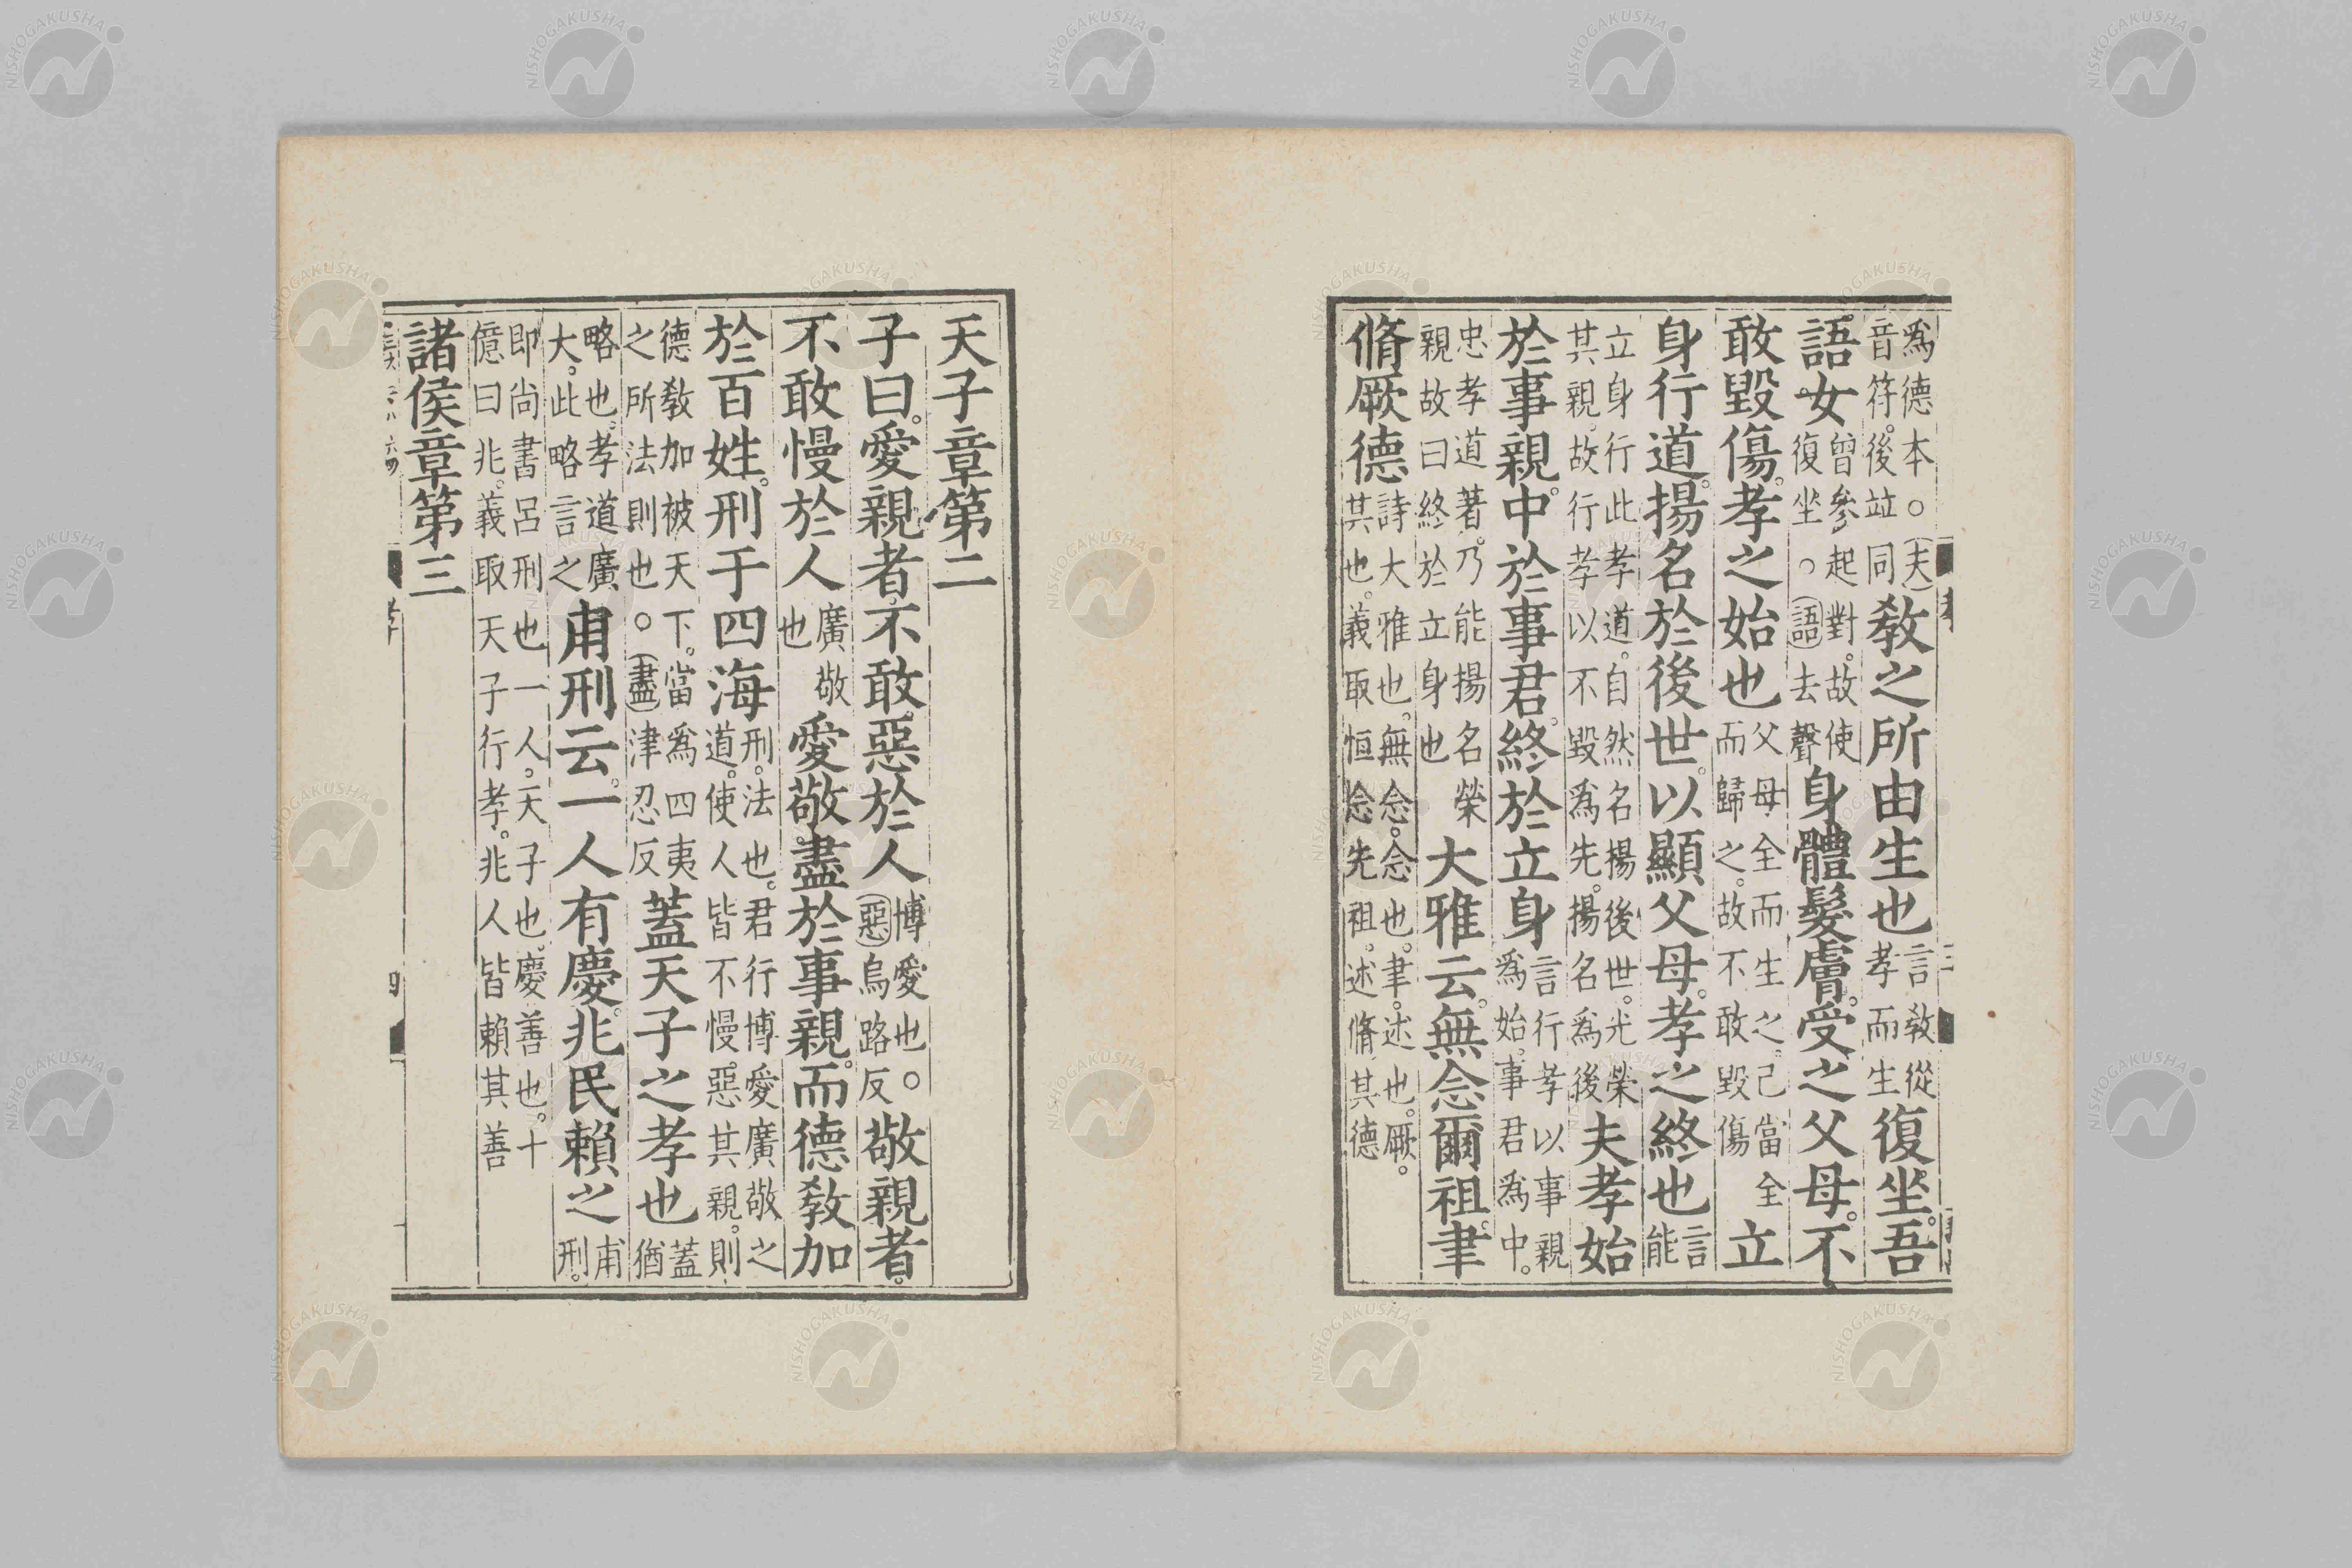 爲德本。夫音符。後竝同教之所由生也言教從孝而生復坐。吾
語女曾參起對。故使復坐。語去聲身體髮膚。受之父母。不
敢毀傷。孝之始也父母全而生之。己當全而歸之。故不敢毀傷立
身行道。揚名於後世。以顯父母。孝之終也言能
立身行此孝道。自然名揚後世。光榮其親。故行孝以不毀爲先。揚名爲後夫孝始
於事親。中於事君。終於立身言行孝以事親爲始。事君爲中。
忠孝道著。乃能揚名榮親故曰終於立身也大雅云。無念爾祖。聿
脩厥德詩大雅也。無念。念也。聿。述也。厥。其也。義取恒念先祖。述脩其德
天子章第二
子曰。愛親者。不敢惡於人博愛也。惡烏路反敬親者。
不敢慢於人廣敬也愛敬盡於事親。而德教加
於百姓。刑于四海刑。法也。君行博愛廣敬之道。使人皆不慢惡其親。則
德教加被天下。當爲四夷之所法則也。盡津忍反蓋天子之孝也蓋猶
略也。孝道廣大。此略言之甫刑云。一人有慶。兆民賴之甫刑。
即尚書呂刑也一人。天子也。慶善也。十億曰兆。義取天子行孝。兆人皆賴其善
諸侯章第三
NISHOGAKUSHA